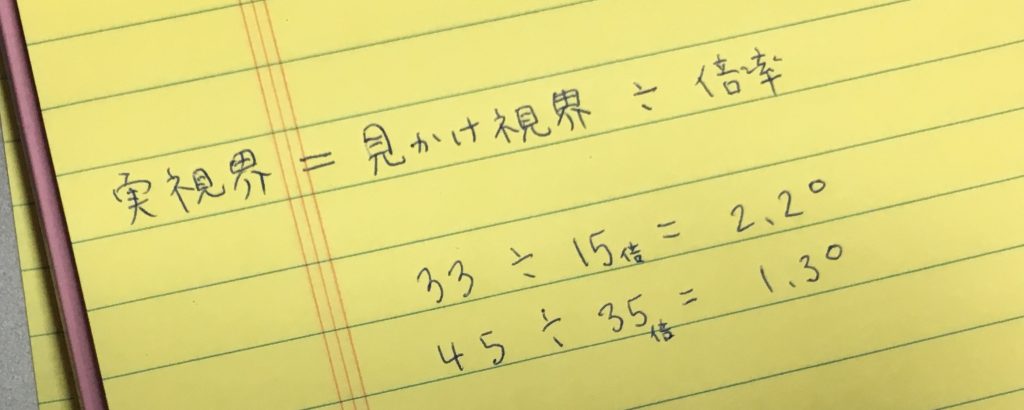 実視界 = 見かけ視界 ÷ 倍率
33 ÷ 15倍 = 2.2°
45 ÷ 35倍 = 1.3°